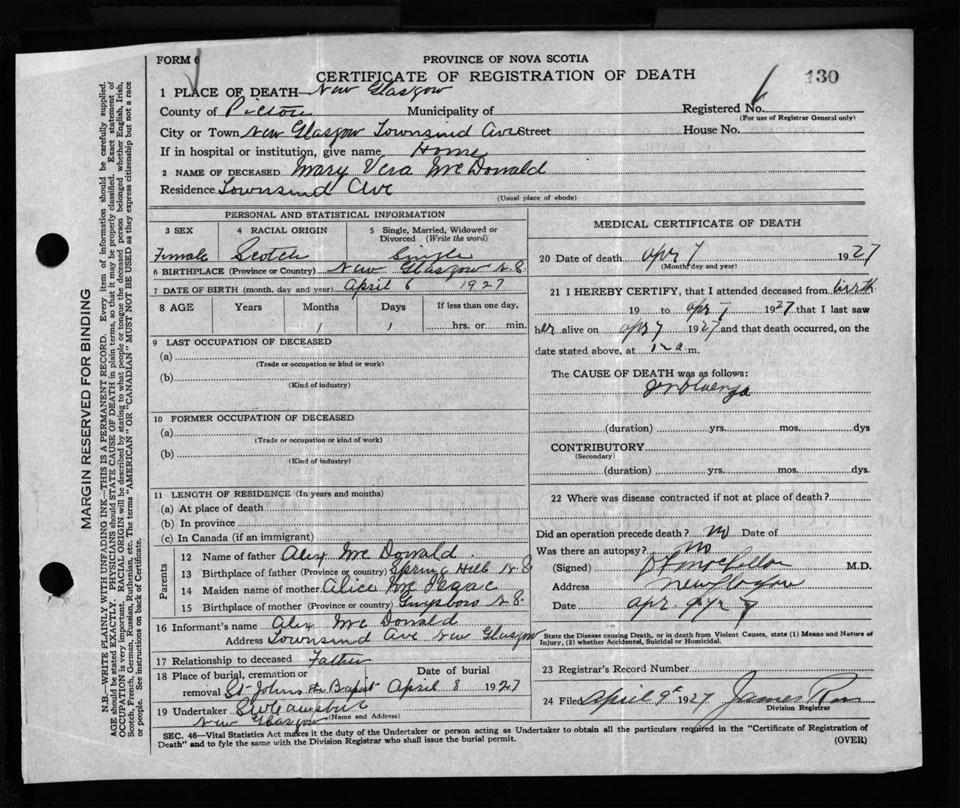 FORM 6
PROVINCE OF NOVA SCOTIA
CERTIFICATE OF REGISTRATION OF DEATH
130
1 PLACE OF DEATH—New Glasgow
County of Pictou Municipality of Registered No.
(For use of Registrar General only)
City or Town New Glasgow Townsind Ave Street House No.
If in hospital or institution, give name Home
2 NAME OF DECEASED Mary Vera Mc Donald
Residence Townsind Ave
(Usual place of abode)
PERSONAL AND STATISTICAL INFORMATION
3 SEX 4 RACIAL ORIGIN 5 Single, Married, Widowed or Divorced (Write the word)
Female Scotch Single
6 BIRTHPLACE (Province or Country) New Glasgow N.S.
7 DATE OF BIRTH (month, day and year) April 6 1927
8 AGE Years Months Days If less than one day,
1 1 hrs. or min.
9 LAST OCCUPATION OF DECEASED
(a)
(Trade or occupation or kind or work)
(b)
(Kind of industry)
10 FORMER OCCUPATION OF DECEASED
(a)
(Trade or occupation or kind of work)
(b)
(Kind of industry)
11 LENGTH OF RESIDENCE (In years and months)
(a) At place of death
(b) In province
(c) In Canada (if an immigrant)
Parents
12 Name of father Alex Mc Donald
13 Birthplace of father (Province or country) Spring Hill N.S
14 Maiden name of mother Alice Mc Isaac
15 Birthplace of mother (Province or country) Guysboro N.S.
16 Informant's name Alex Mc Donald
Address Townsind Ave New Glasgow
17 Relationship to deceased Father
18 Place of burial, cremation or removal St Johns the Baptist Date of burial April 8 1927
19 Undertaker
New Glasgow (Name and Address)
MEDICAL CERTIFICATE OF DEATH
20 Date of death Apr 7 1927
(Month day and year)
21 I HEREBY CERTIFY, that I attended deceased from birth
19 to Apr 7 1927 that I last saw
her alive on Apr 7 1927 and that death occurred, on
the date stated above, at 12 a.m.
The CAUSE OF DEATH was as follows:
(duration) yrs. mos. dys
CONTRIBUTORY
(Secondary)
(duration) yrs. mos. dys.
22 Where was disease contracted if not at place of death?
Did an operation precede death? No Date of
Was there an autopsy? No
(Signed) M.D.
Address New Glasgow
Date Apr.
State the Disease causing Death, or in death from Violent Causes, state (1) Means and Nature of Injury, (2) whether Accidental, Suicidal or Homicidal.
23 Registrar's Record Number
24 Filed April 9th 1927 James
Division Registrar
SEC. 46—Vital Statistics Act makes it the duty of the Undertaker or person acting as Undertaker to obtain all the particulars required in the "Certificate of Registration of Death" and to fyle the same with the Division Registrar who shall issue the burial permit.
(OVER)
MARGIN RESERVED FOR BINDING
N.B.—WRITE PLAINLY WITH UNFADING INK—THIS IS A PERMANENT RECORD. Every item of information should be carefully supplied.
AGE should be stated EXACTLY. PHYSICIANS should STATE CAUSE OF DEATH in plain terms, so that it may be properly classified. Exact statement of
OCCUPATION is very important. RACIAL ORIGIN will be described by stating to what people or tongue the deceased person belonged whether English, Irish,
Scotch, French, German, Russian, Ruthenian, etc. The terms "AMERICAN" OR "CANADIAN" MUST NOT BE USED as they express citizenship but not a race
or people. See instructions on back of Certificate.